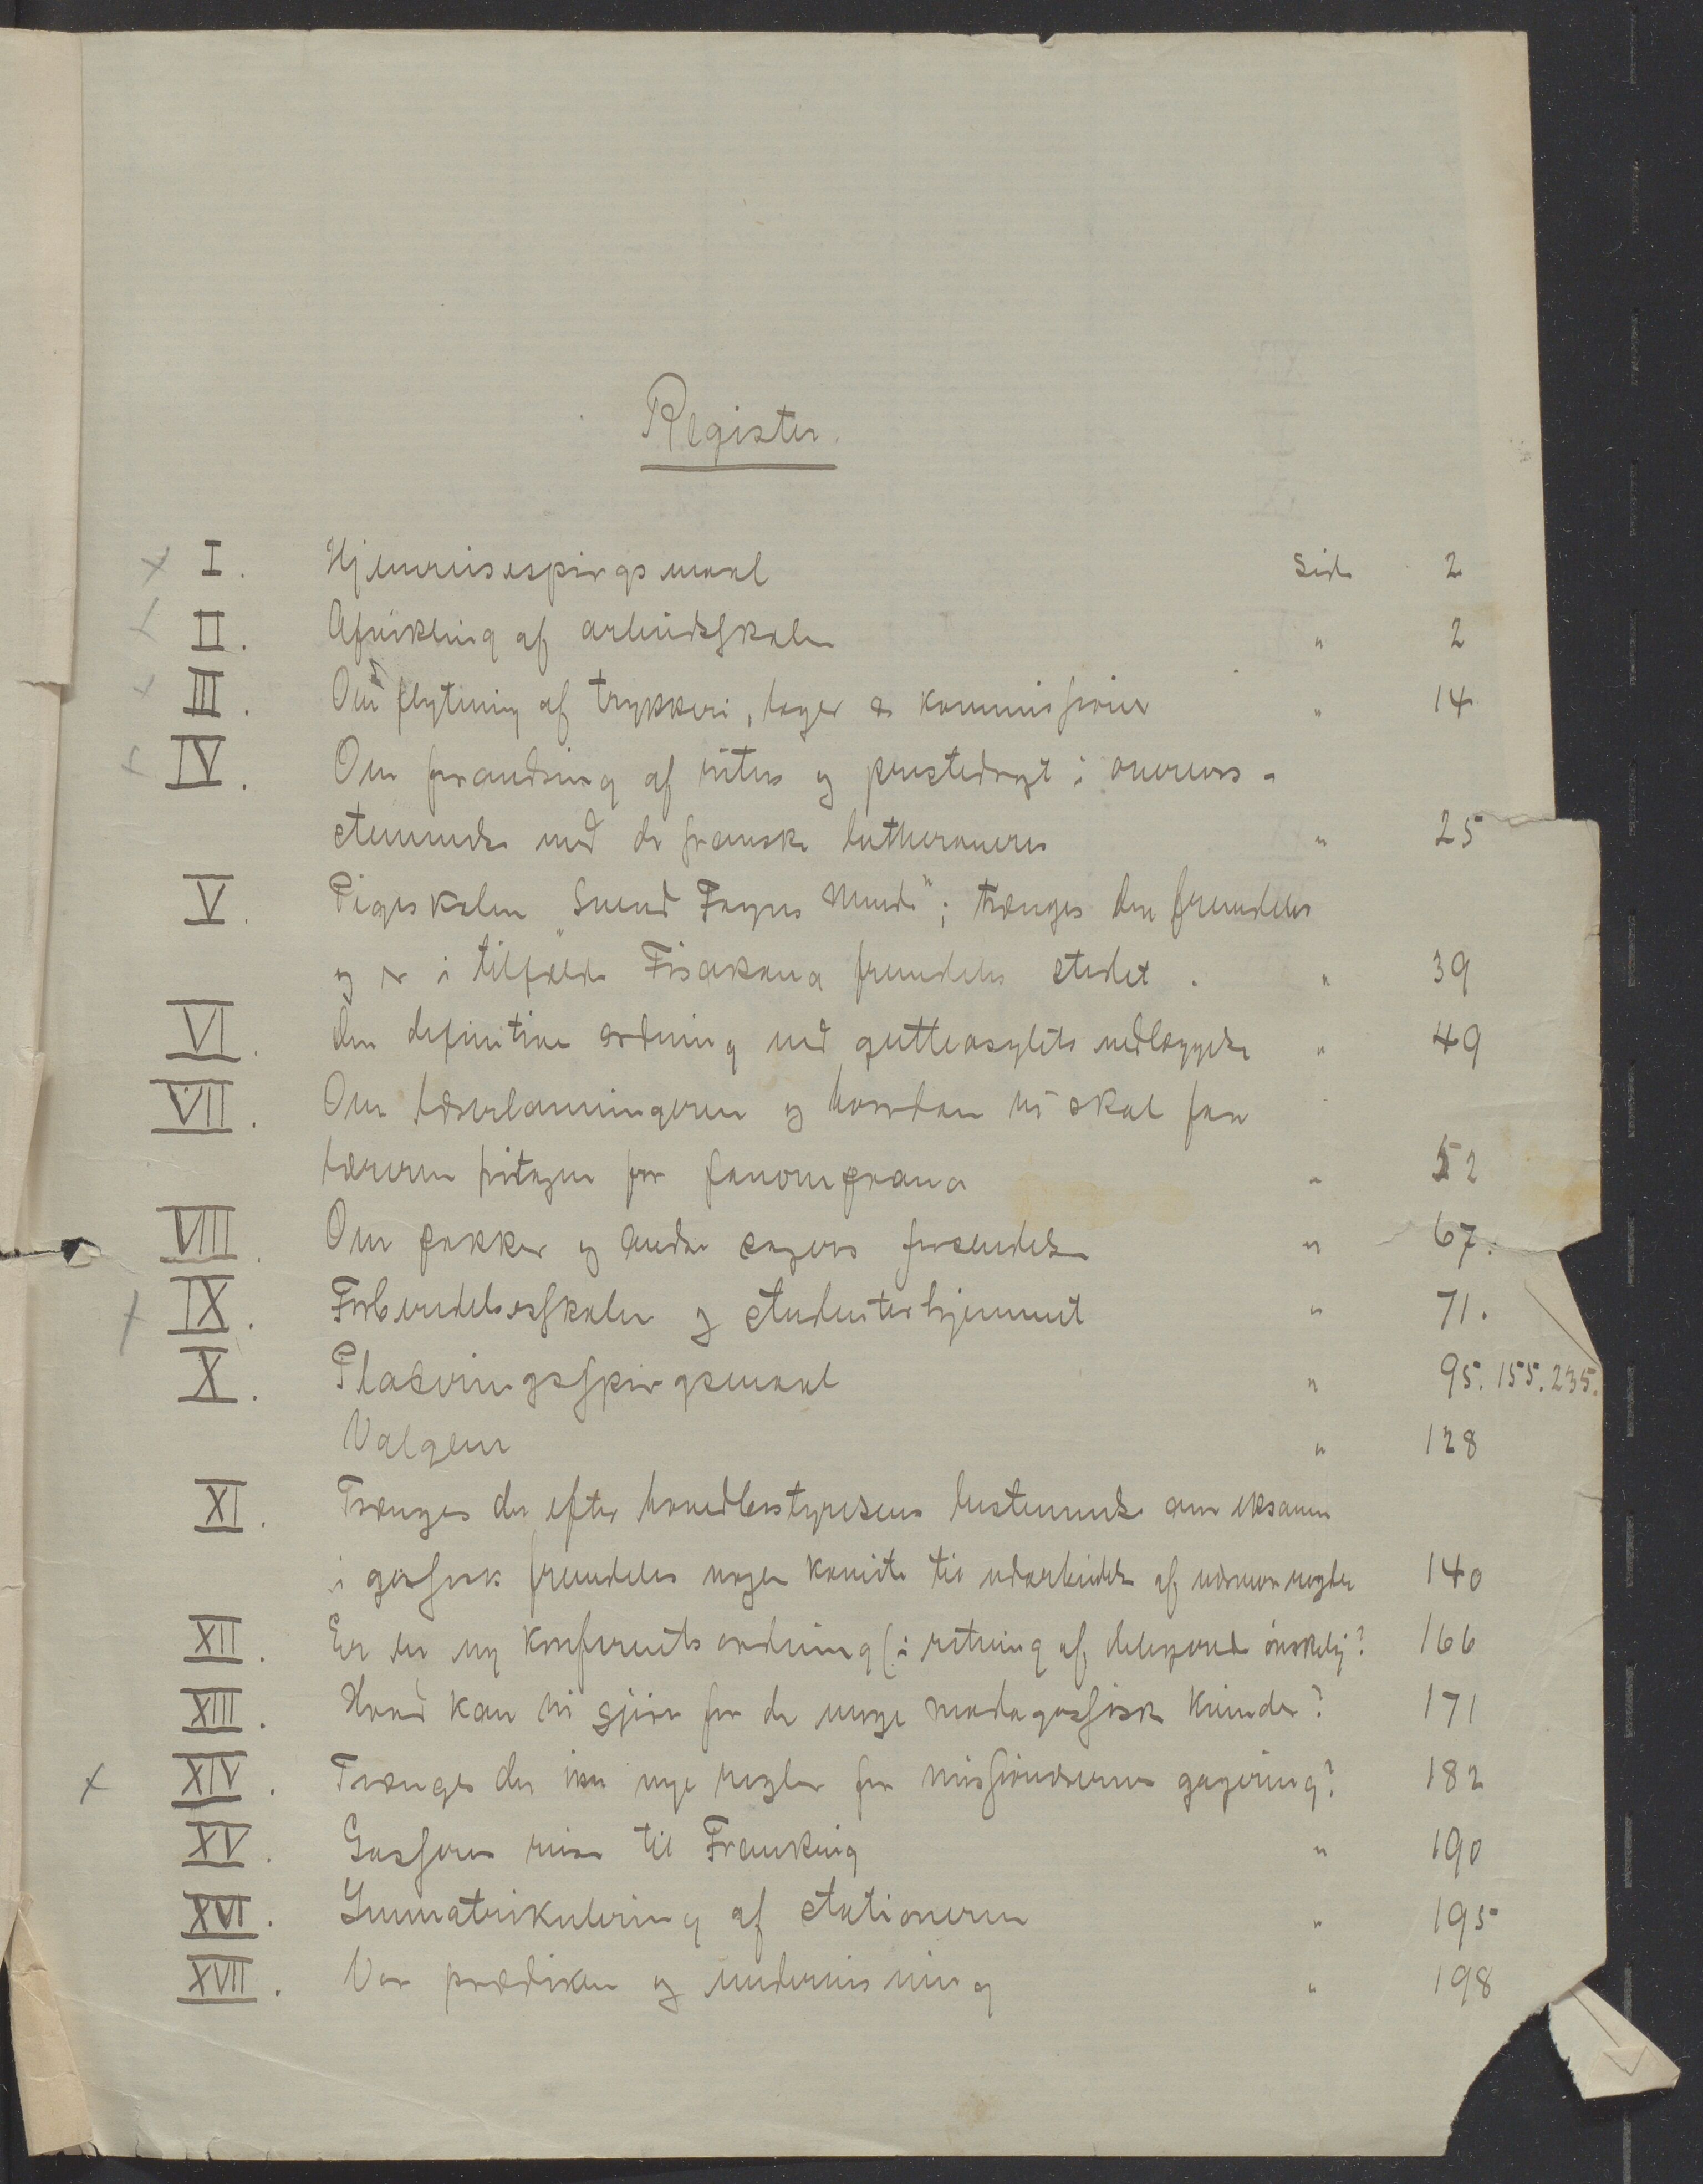 Register.
x I. Hjemreisespørgsmaal Side 2
x II. Afvikling af arbeidsskolen " 2
x III. Om flytning af trykkeri, lager & kommissioner " 14
x IV. Om forandring af ritus og prestedragt i overens-
stemmelse med de franske lutheranere " 25
V. Pigeskolen "Svend Foyns Minde"; trænges den fremdeles
og er i tilfælde Fisakana fremdeles stedet. " 39
VI. Den definitive ordning ved gutteasylets nedlæggelse " 49
VII. Om og hvordan vi skal faa
lærerne fritagne for fanompoana " 52
VIII. Om pakker og andre sagers forsendelse " 67.
x IX. Forberedelsesskolen og studenterhjemmet " 71.
X. Placeringsspørgsmaal " 95. 155. 235.
Valgene " 128
XI. Trænges der efter hovedbestyrelsens bestemmelse om eksamen
i gassisk fremdeles nogen komite til udarbeidelse af nærmere regler 140
XII. Er en ny konferentsordning (i retning af delegerede ønskelig? 166
XIII. Hvad kan vi gjøre for de unge madagassiske kvinder? 171
x XIV. Trænges der ikke nye regler for missionærernes gagering? 182
XV. Gasseres reise til Frankrig " 190
XVI. Immatrikulering af stationerne " 195
XVII. Vor prædiken og undervisning " 198